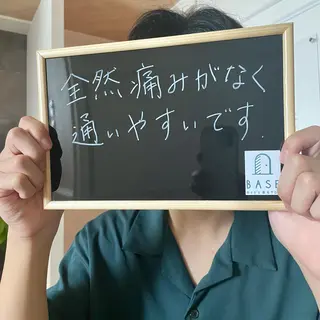 全然痛みがなく
通いやすいです.
BASE